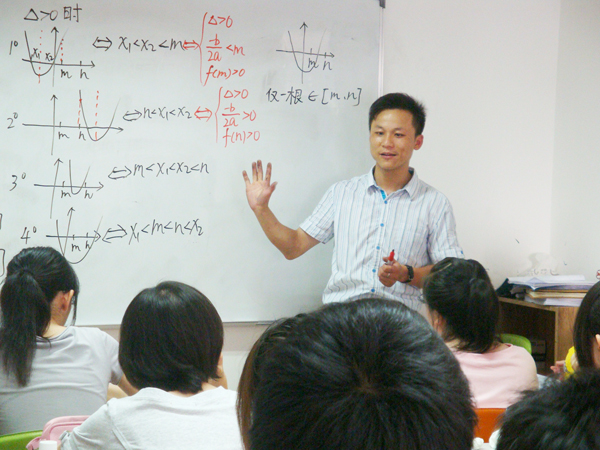 Δ>0 时
1° x₁ x₂ m n ⇔ x₁<x₂<m ⇔ { Δ>0
-b/2a <m
f(m)>0
m n
仅一根∈[m,n]
2° m n ⇔ n<x₁<x₂ ⇔ { Δ>0
-b/2a >0
f(n)>0
3° m n ⇔ m<x₁<x₂<n
4° m n ⇔ x₁<m<n<x₂